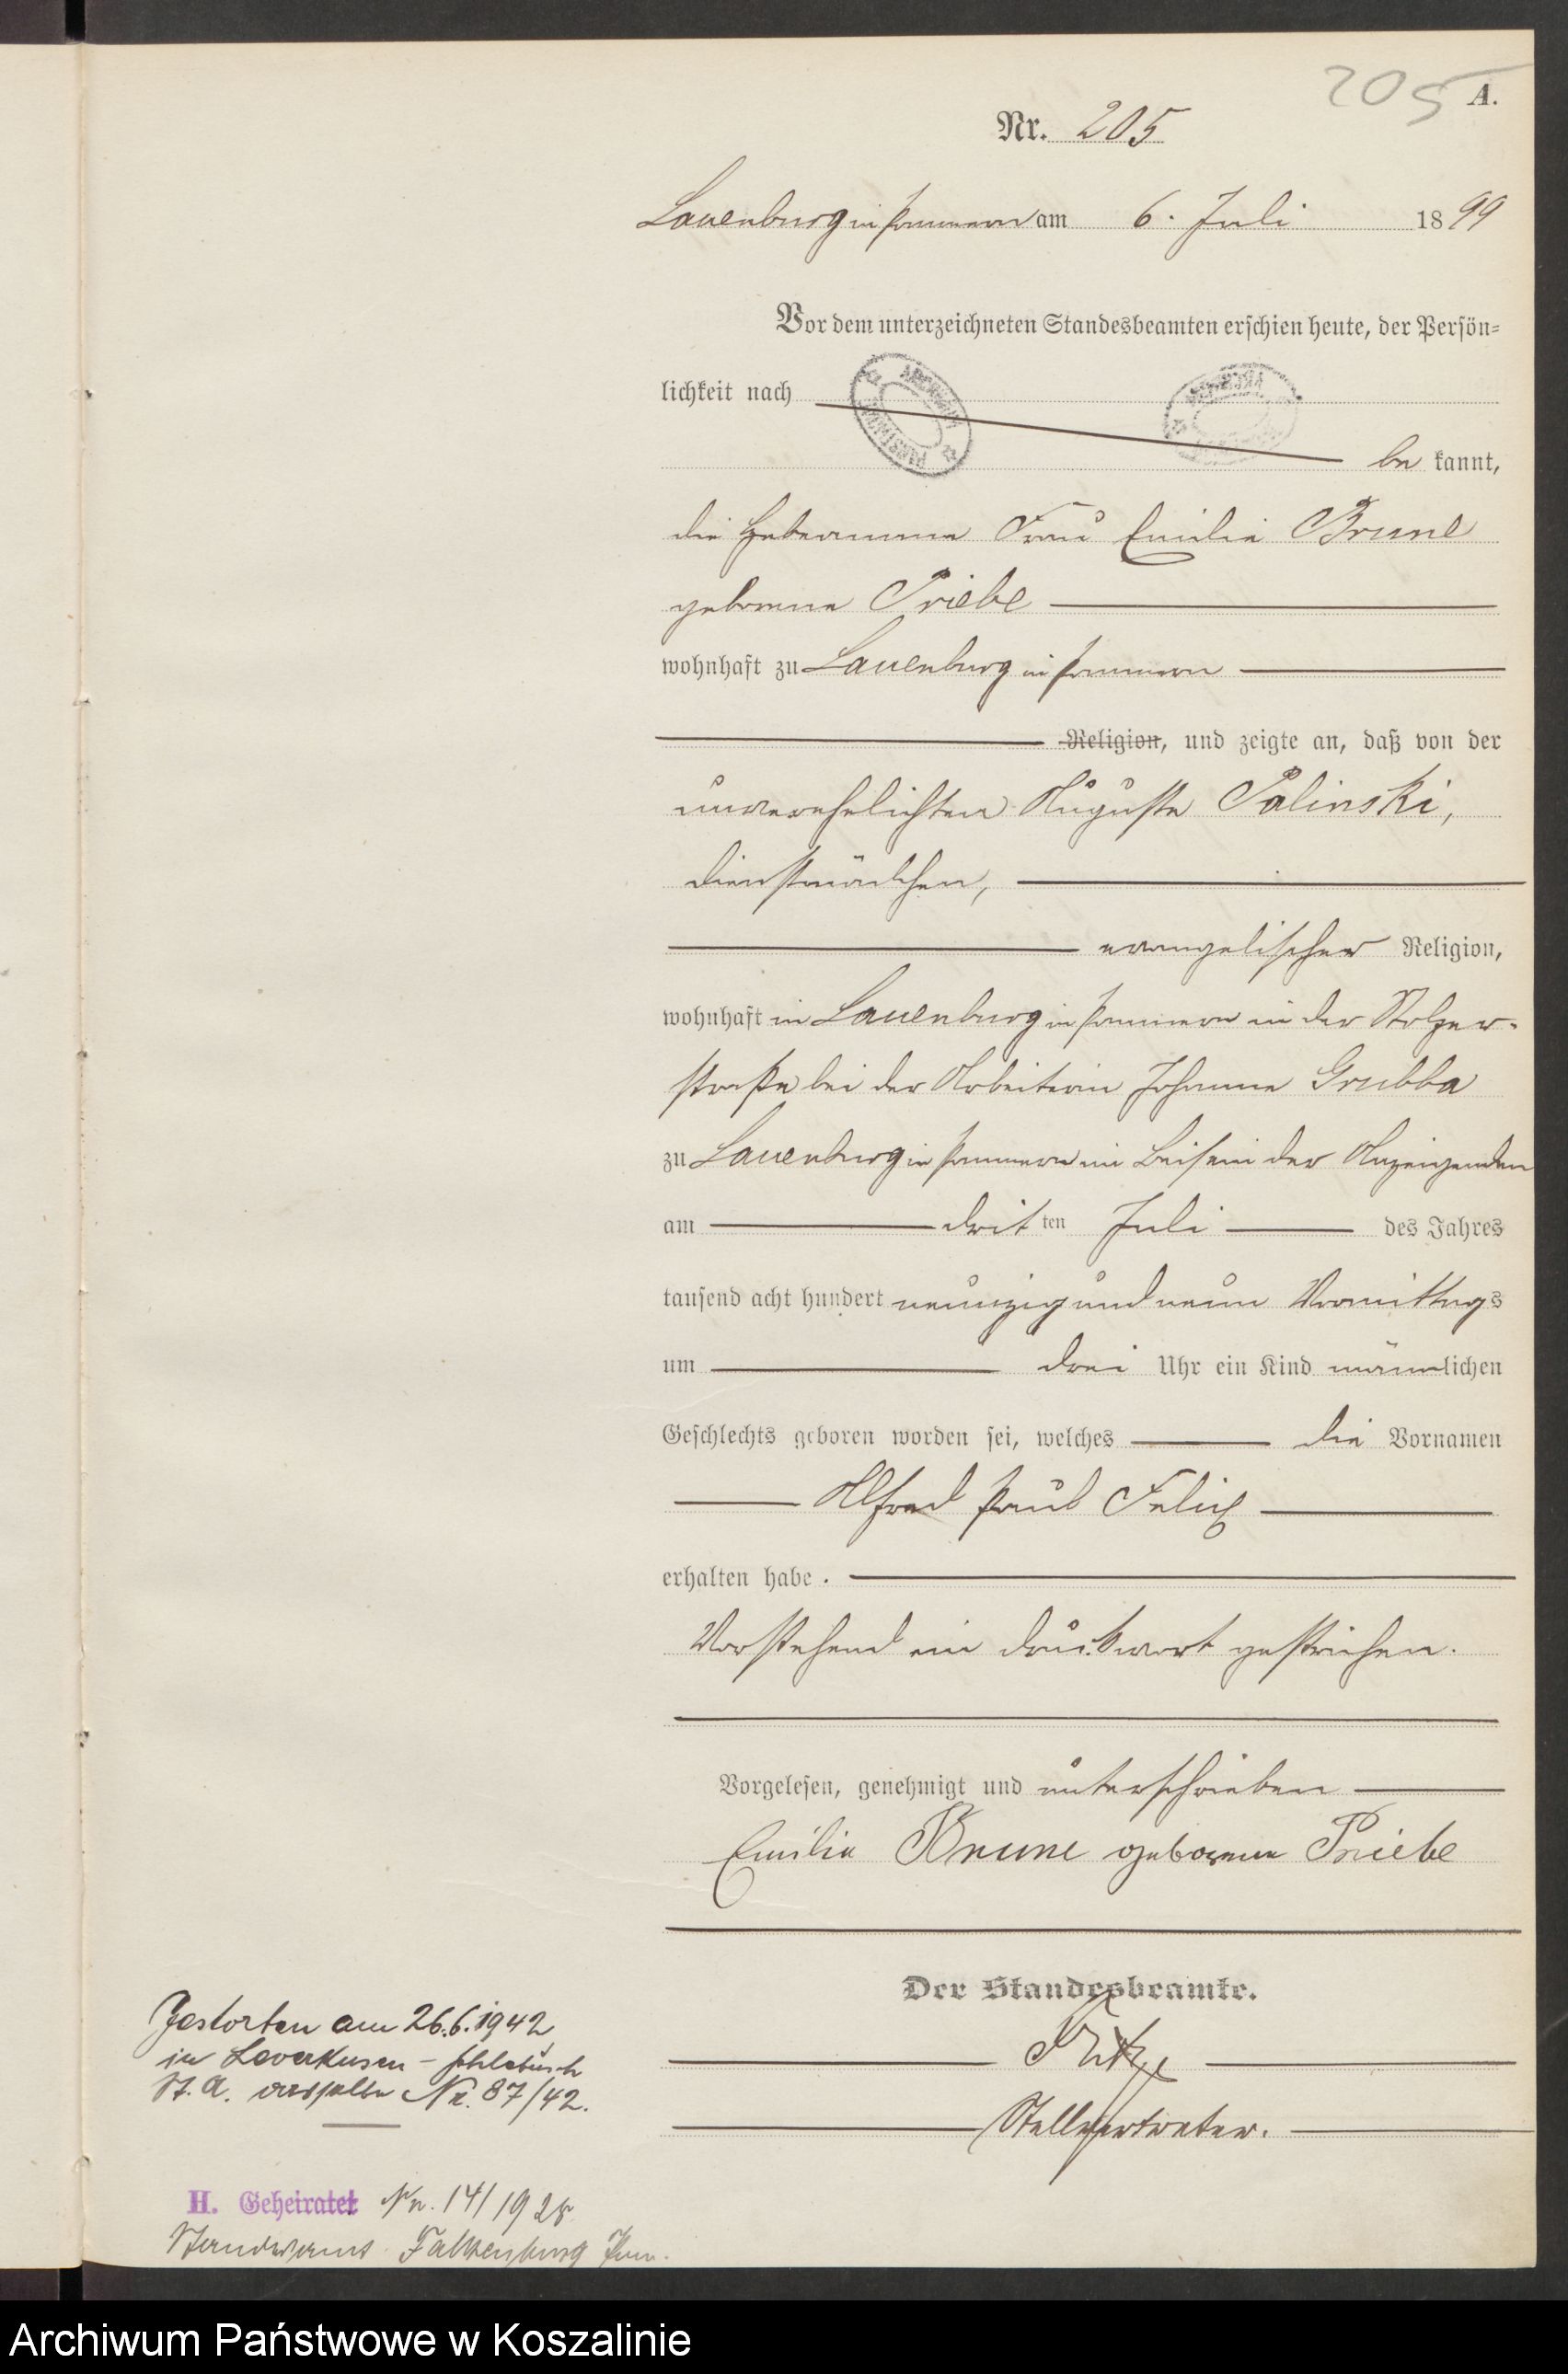 205
A.
Nr. 205
Lauenburg in Pommern am 6. Juli 1899
Vor dem unterzeichneten Standesbeamten erschien heute, der Persön-
lichkeit nach
be kannt,
die Hebeamme Frau Emilie Brune
geborene Priebe
wohnhaft zu Lauenburg in Pommern
Religion, und zeigte an, daß von der
unverehelichten Auguste Palinski,
Dienstmädchen,
evangelischer Religion,
wohnhaft in Lauenburg in Pommern in der Stolper-
straße bei der Arbeiterin Johanna Grubba
zu Lauenburg in Pommern im Beisein der Anzeigenden
am dritten Juli des Jahres
tausend acht hundert neunzig und neun Vormittags
um drei Uhr ein Kind männlichen
Geschlechts geboren worden sei, welches die Vornamen
Alfred Paul Felix
erhalten habe.
Vorstehend ein Druckwort gestrichen.
Vorgelesen, genehmigt und unterschrieben
Emilie Brune geborene Priebe
Der Standesbeamte.
Stellvertreter.
Gestorben am 26.6.1942
in Leverkusen - Schlebusch
St. A. Nr. 87/42.
H. Geheiratet Nr. 14/1928
Standesamt Falkenburg Pom.
Archiwum Państwowe w Koszalinie